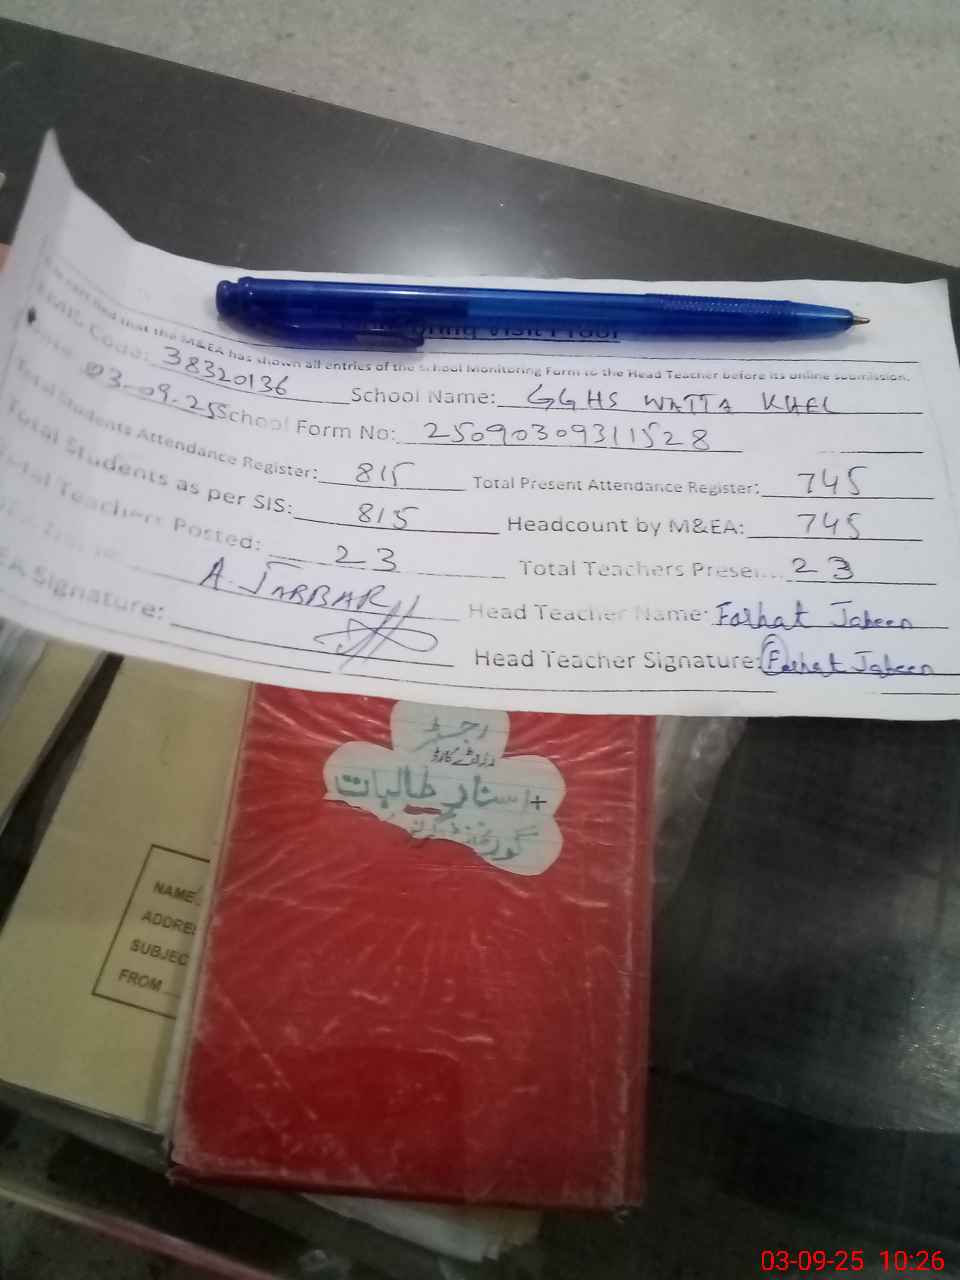 Visit Proof
that the M&EA has shown all entries of the School Monitoring Form to the Head Teacher before its online submission.
Code: 38320136 School Name: GGHS WATTA KHEL
03-09-25 School Form No: 25090309311528
Total Students Attendance Register: 815 Total Present Attendance Register: 745
Total Students as per SIS: 815 Headcount by M&EA: 745
Total Teachers Posted: 23 Total Teachers 23
A. JABBAR Head Teacher Name: Farhat Jabeen
Signature: Head Teacher Signature: Farhat Jabeen
رجسٹر
اسناد طالبات
NAME
SUBJEC
FROM
03-09-25 10:26